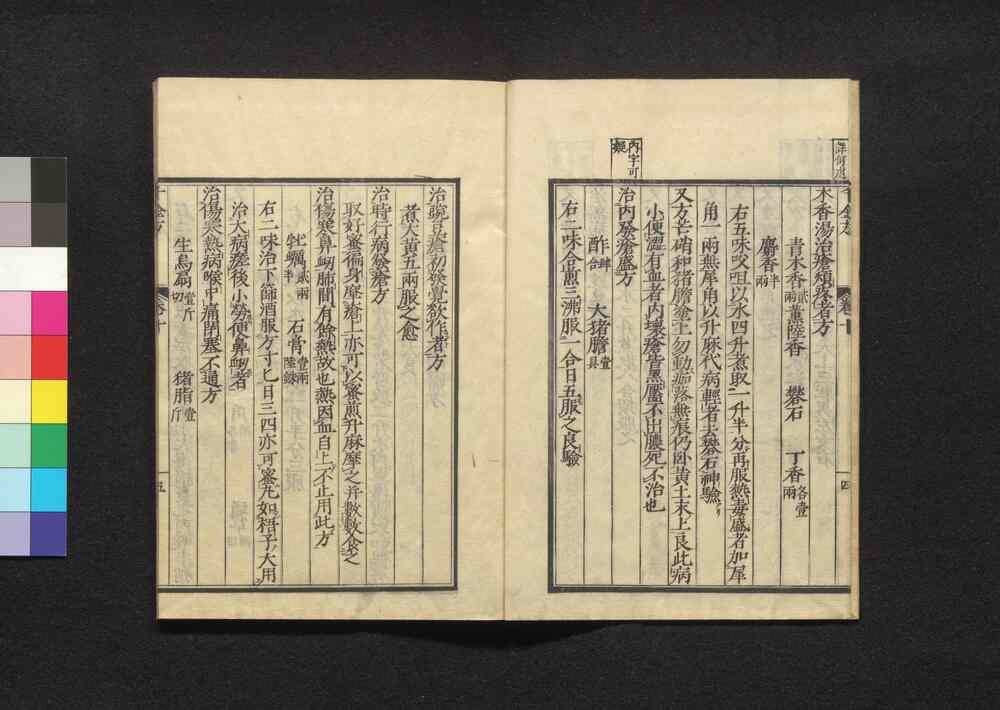 木香湯治瘡煩疼者方
青木香貳兩薰陸香 礬石 丁香各壹兩
麝香半兩
右五味㕮咀以水四升煮取一升半分再服熱毒盛者加犀
角一兩無犀角以升麻代病輕者去礬石神驗
又方芒硝和猪膽塗上勿動痂落無痕仍卧黄土末上良此病
小便澀有血者内壞瘡皆黑靨不出膿死不治也
内字可疑
治内發瘡盛方
酢肆合 大猪膽壹具
右二味合煎三沸服一合日五服之良驗
四
治豌豆瘡初發覺欲作者方
煮大黄五兩服之愈
治時行病發瘡方
取好蜜徧身摩瘡上亦可以蜜煎升麻摩之并數數食之
治傷寒鼻衄肺間有餘熱故也熱因血自上不止用此方
牡蠣貳兩半 石膏壹兩陸銖
右二味治下篩酒服方寸匕日三四亦可蜜丸如梧子大用
治大病瘥後小勞便鼻衄者
治傷寒熱病喉中痛閉塞不通方
生烏扇壹斤切 猪脂壹斤
五